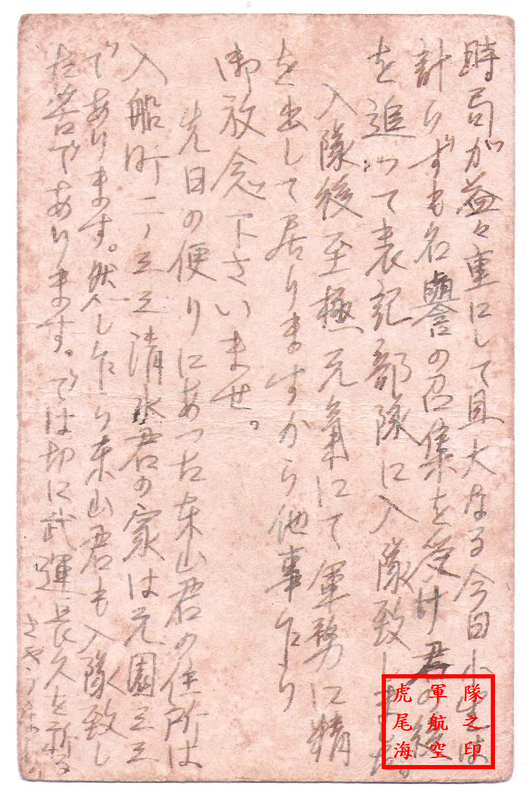 時局が益々重にして且大なる今日小生は
計りずも名誉の召集を受け君の後
を追って表記部隊に入隊致しました
入隊後至極元氣にて軍務に精
を出して居りますから他事乍り
御放念下さいませ。
先日の便りにあった東山君の住所は
入船町二ノ三三清水君の家は元園三三
であります。然し乍り東山君も入隊致し
た筈であります。では切に武運長久を祈る
さやうなら
虎尾海
軍航空
隊之印